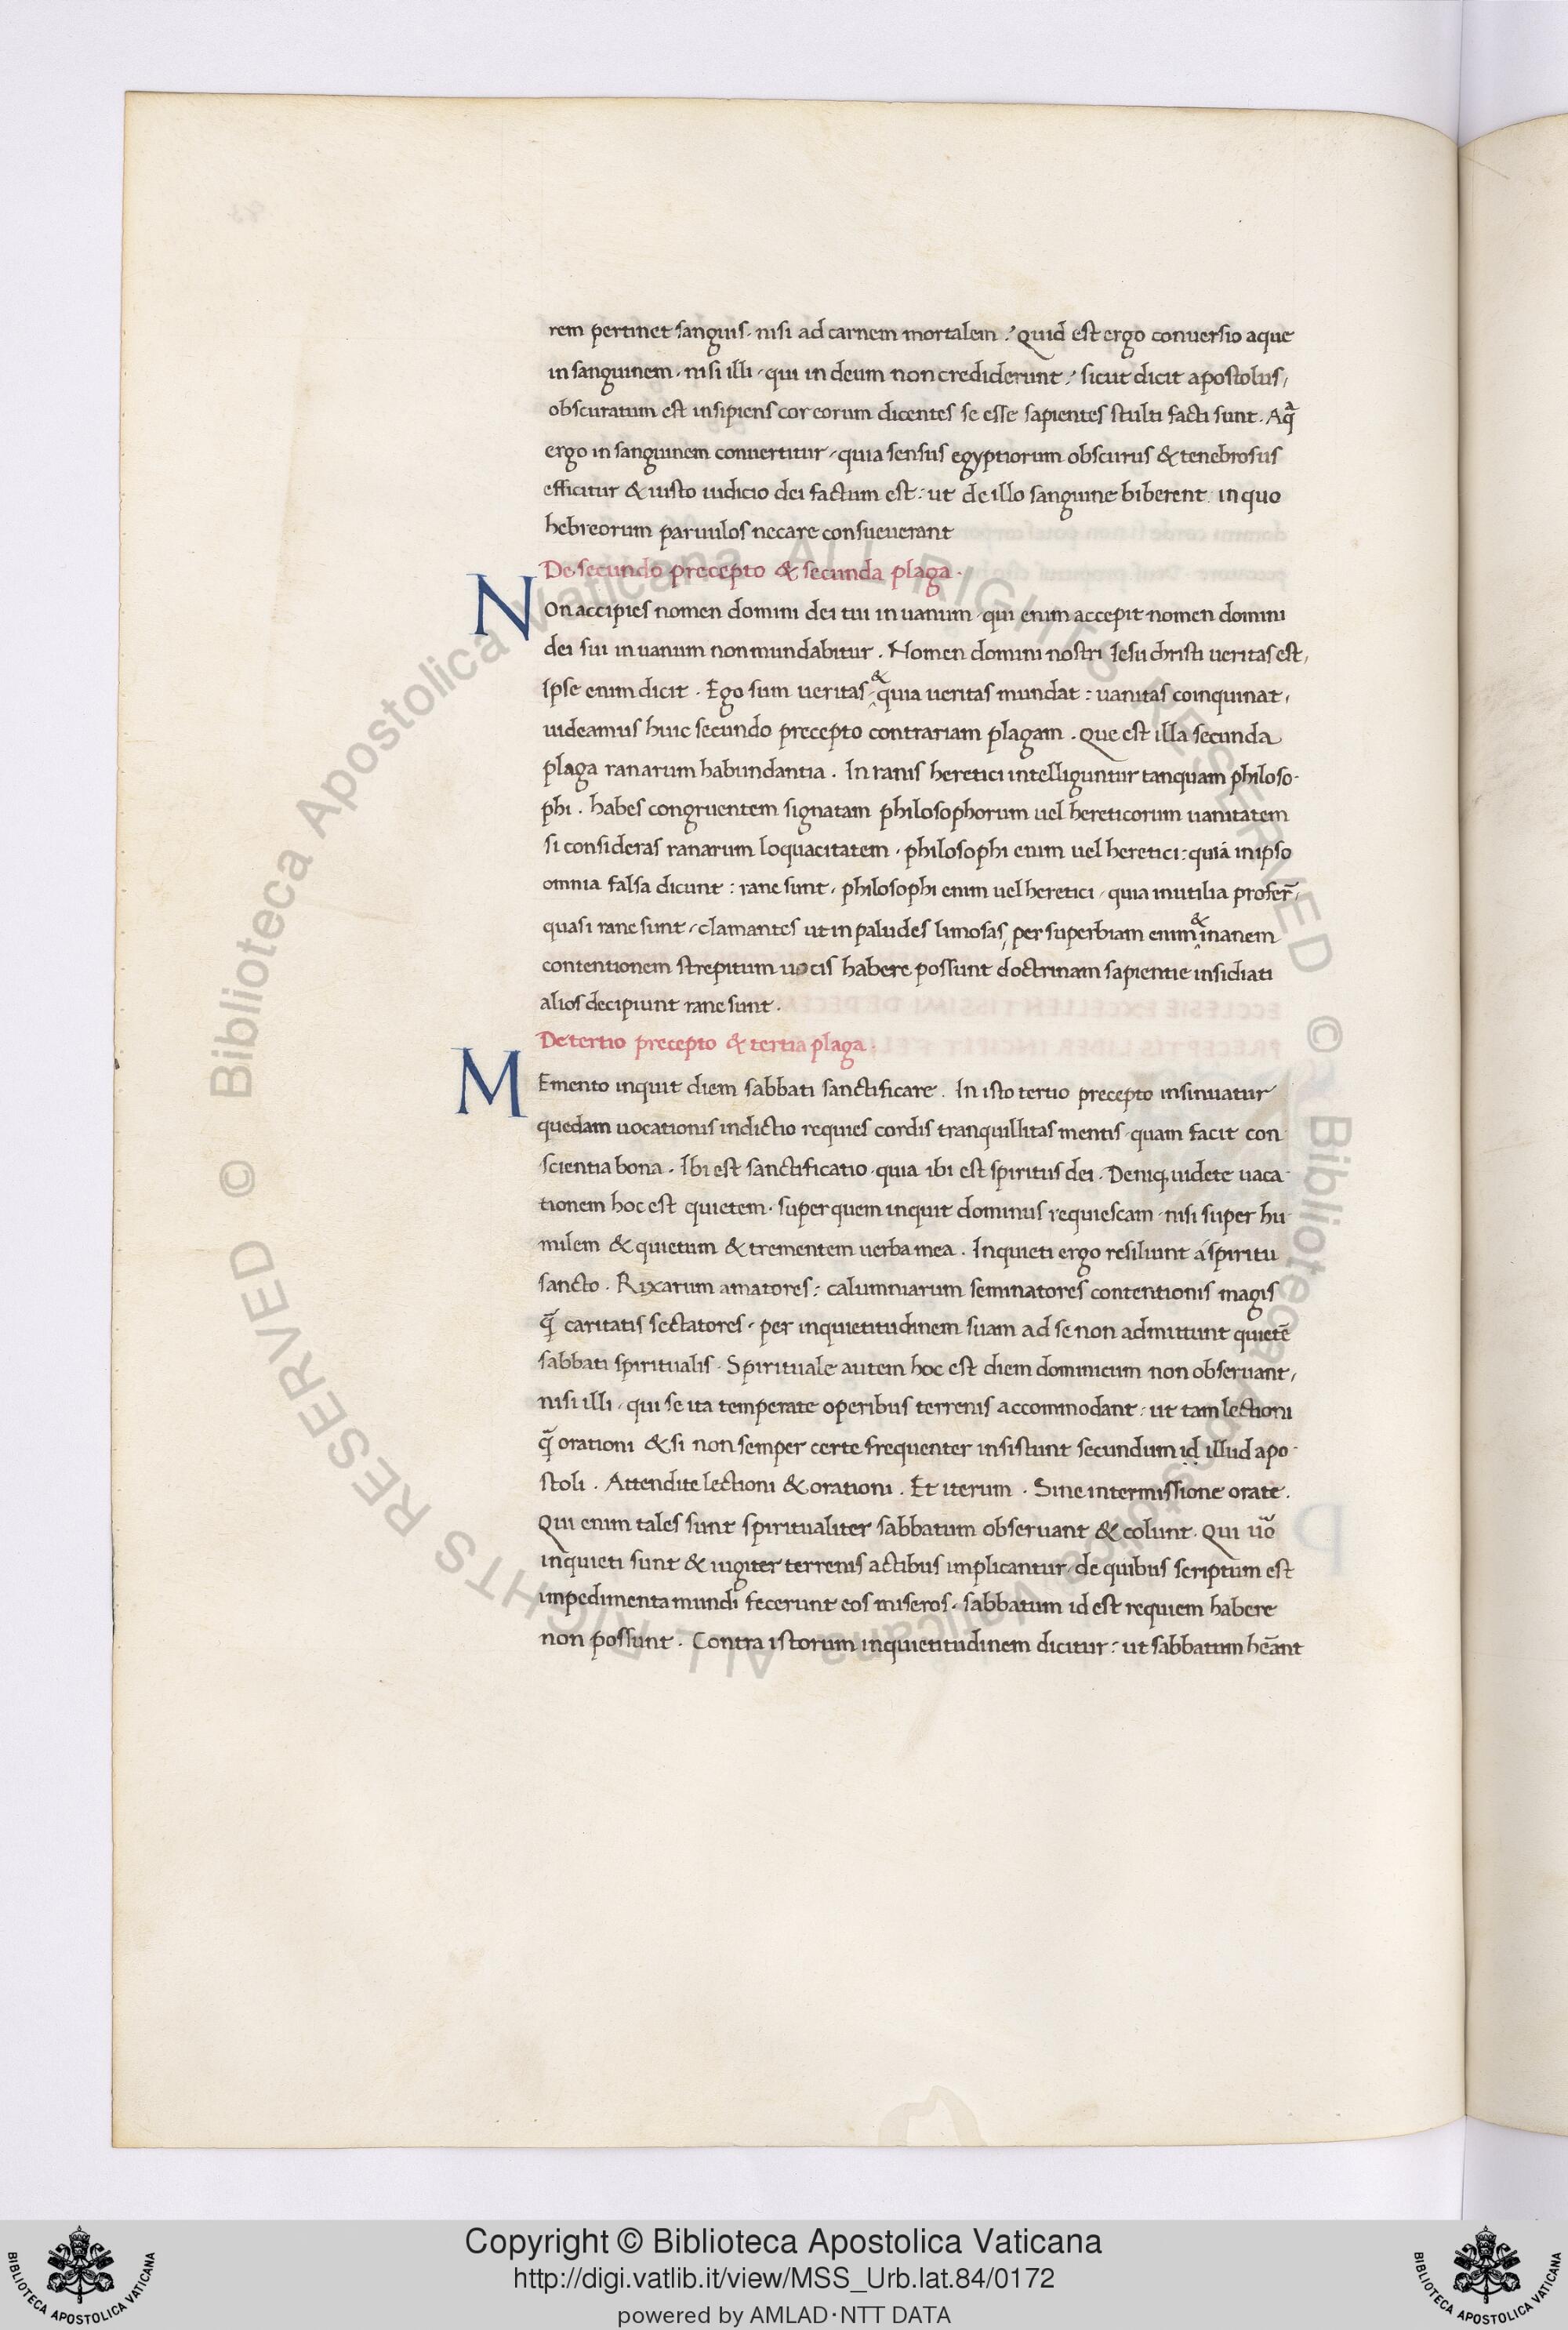 rem pertinet sanguis · nisi ad carnem mortalem ? Quid est ergo conuersio aque
in sanguinem · nisi illi · qui in deum non crediderunt ? sicut dicit apostolus,
obscuratum est insipiens cor eorum dicentes se esse sapientes stulti facti sunt . Aq̄
ergo in sanguinem conuertitur · quia sensus egyptiorum obscurus & tenebrosus
efficitur & iusto iudicio dei factum est : ut de illo sanguine biberent in quo
hebreorum paruulos necare consueuerant
De secundo precepto & secunda plaga .
NOn accipies nomen domini dei tui in uanum · qui enim accepit nomen domini
dei sui in uanum non mundabitur . Nomen domini nostri Iesu christi ueritas est,
Ipse enim dicit . Ego sum ueritas · & quia ueritas mundat : uanitas coinquinat,
uideamus huic secundo precepto contrariam plagam . Que est illa secunda
plaga ranarum habundantia . In ranis heretici intelliguntur tanquam philoso-
phi . habes congruentem signatam philosophorum uel hereticorum uanitatem
si consideras ranarum loquacitatem · philosophi enim uel heretici : quia in ipso
omnia falsa dicunt : rane sunt, philosophi enim uel heretici · quia inutilia profer̄,
quasi rane sunt · clamantes ut in paludes limosas, per superbiam enim & inanem
contentionem strepitum uocis habere possunt doctrinam sapientie insidiati
alios decipiunt rane sunt .
De tertio precepto & tertia plaga .
MEmento inquit diem sabbati sanctificare . In isto tertio precepto insinuatur
quedam uocationis indictio requies cordis tranquillitas mentis · quam facit con
scientia bona . Ibi est sanctificatio · quia ibi est spiritus dei . Deniq; uidete uaca-
tionem hoc est quietem · super quem inquit dominus requiescam · nisi super hu
milem & quietum & trementem uerba mea . Inquieti ergo resiliunt á spiritu
sancto . Rixarum amatores : calumniarum seminatores contentionis magis
q̄ caritatis sectatores · per inquietitudinem suam ad se non admittunt quietē
sabbati spiritualis . Spirituale autem hoc est diem dominicum non obseruant,
nisi illi · qui se ita temperate operibus terrenis accommodant : ut tam lectioni
q̄ orationi & si non semper certe frequenter insistunt secundum id illud apo-
stoli . Attendite lectioni & orationi . Et iterum . Sine intermissione orate .
Qui enim tales sunt spiritualiter sabbatum obseruant & colunt . Qui uō
inquieti sunt & iugiter terrenis actibus implicantur · de quibus scriptum est
impedimenta mundi fecerunt eos miseros · sabbatum id est requiem habere
non possunt . Contra istorum inquietitudinem dicitur : ut sabbatum hēant
Copyright © Biblioteca Apostolica Vaticana
http://digi.vatlib.it/view/MSS_Urb.lat.84/0172
powered by AMLAD·NTT DATA
© Biblioteca Apostolica Vaticana ALL RIGHTS RESERVED
© Biblioteca Apostolica Vaticana ALL RIGHTS RESERVED
BIBLIOTECA APOSTOLICA VATICANA
BIBLIOTECA APOSTOLICA VATICANA